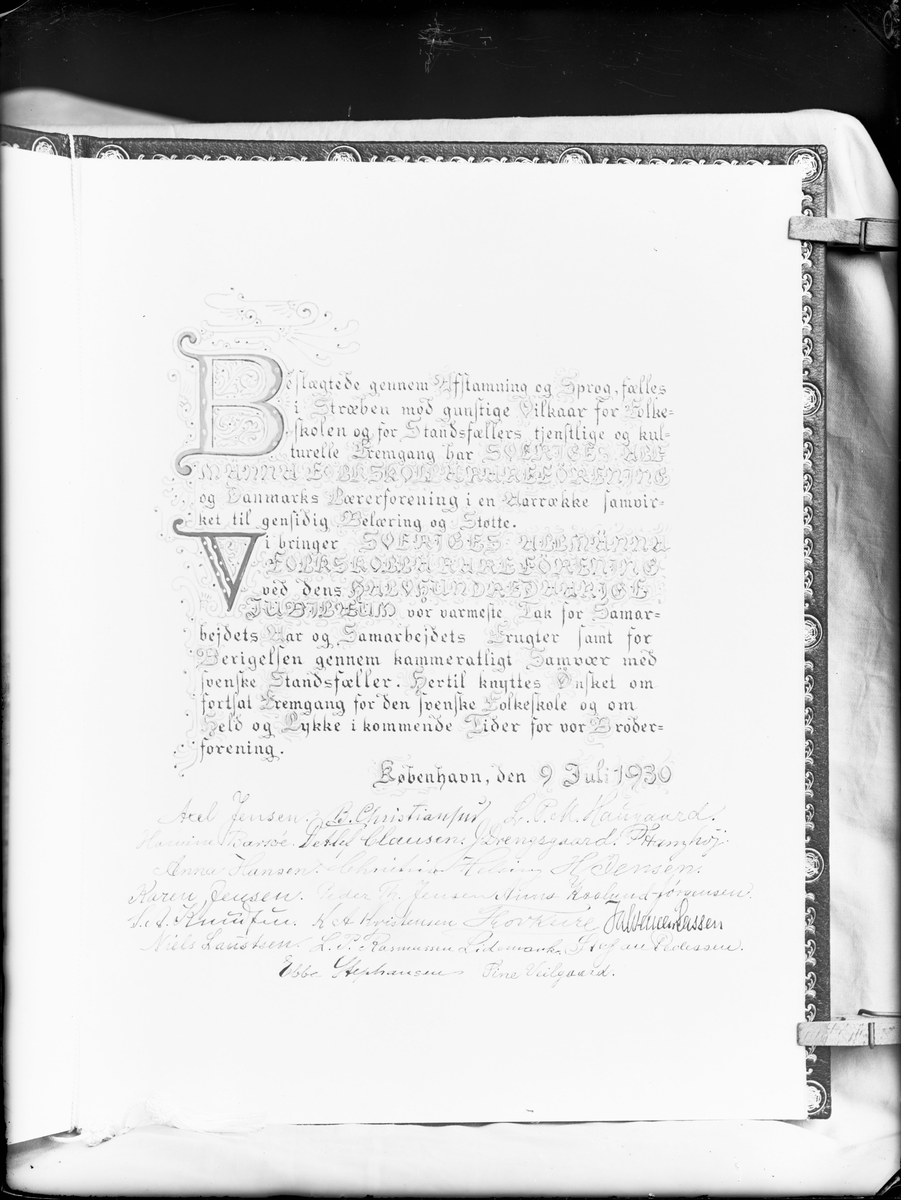 Beslægtede gennem Afstamning og Sprog, fælles
i Stræben mod gunstige Vilkaar for Folke-
skolen og for Standsfællers tjenstlige og kul-
turelle Fremgang har SVERIGES ALL-
MÄNNA FOLKSKOLLÄRAREFÖRENING
og Danmarks Lærerforening i en Aarrække samvir-
ket til gensidig Belæring og Støtte.
Vi bringer SVERIGES ALLMÄNNA
FOLKSKOLLÄRAREFÖRENING
ved dens HALVHUNDREDAARIGE
JUBILÆUM vor varmeste Tak for Samar-
bejdets Aar og Samarbejdets Frugter samt for
Berigelsen gennem kammeratligt Samvær med
svenske Standsfæller. Hertil knyttes Ønsket om
fortsat Fremgang for den svenske Folkeskole og om
Held og Lykke i kommende Tider for vor Bröder-
forening.
København, den 9 Juli 1930
Axel Jensen. B. Christiansen L. P. M. Haugaard.
Detlef Clausen. J Drengsgaard. P Hanghøj.
Anna Hansen. Christian H. Jensen.
Karen Jensen. Peder Th. Jensen Anna Jørgensen.
S. A. Knudsen. K A Kristensen J Alb Lassen
Niels Laustsen. L. P. Rasmussen Stefan Pedersen.
Ebbe Stephansen Tine Vielgaard.